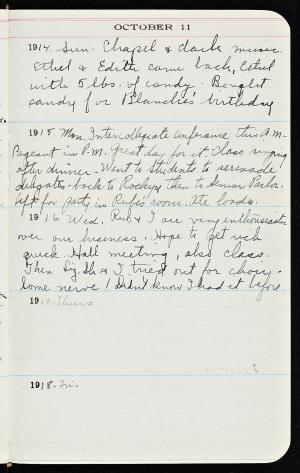 OCTOBER 11
1914. Sun. Chapel & dark music.
Ethel & Edith came back, Ethel
with 5 lbs. of candy. Bought
candy for Blanche's birthday
1915. Mon. Intercollegiate conference this A.M.
Pageant in P.M. Great day for it. Class singing
after dinner - Went to Students to serenade
delegates - back to Rockey, then to Senior Parlor.
left for party in Rufie's room. Ate loads.
1916. Wed. Rub & I are very enthusiastic
over our business. Hope to get rich
quick. Hall meeting, also class.
Then Liz, Sh & I tried out for choir -
Some nerve! Didn't know I had it before.
1917. Thurs
1918. Fri.